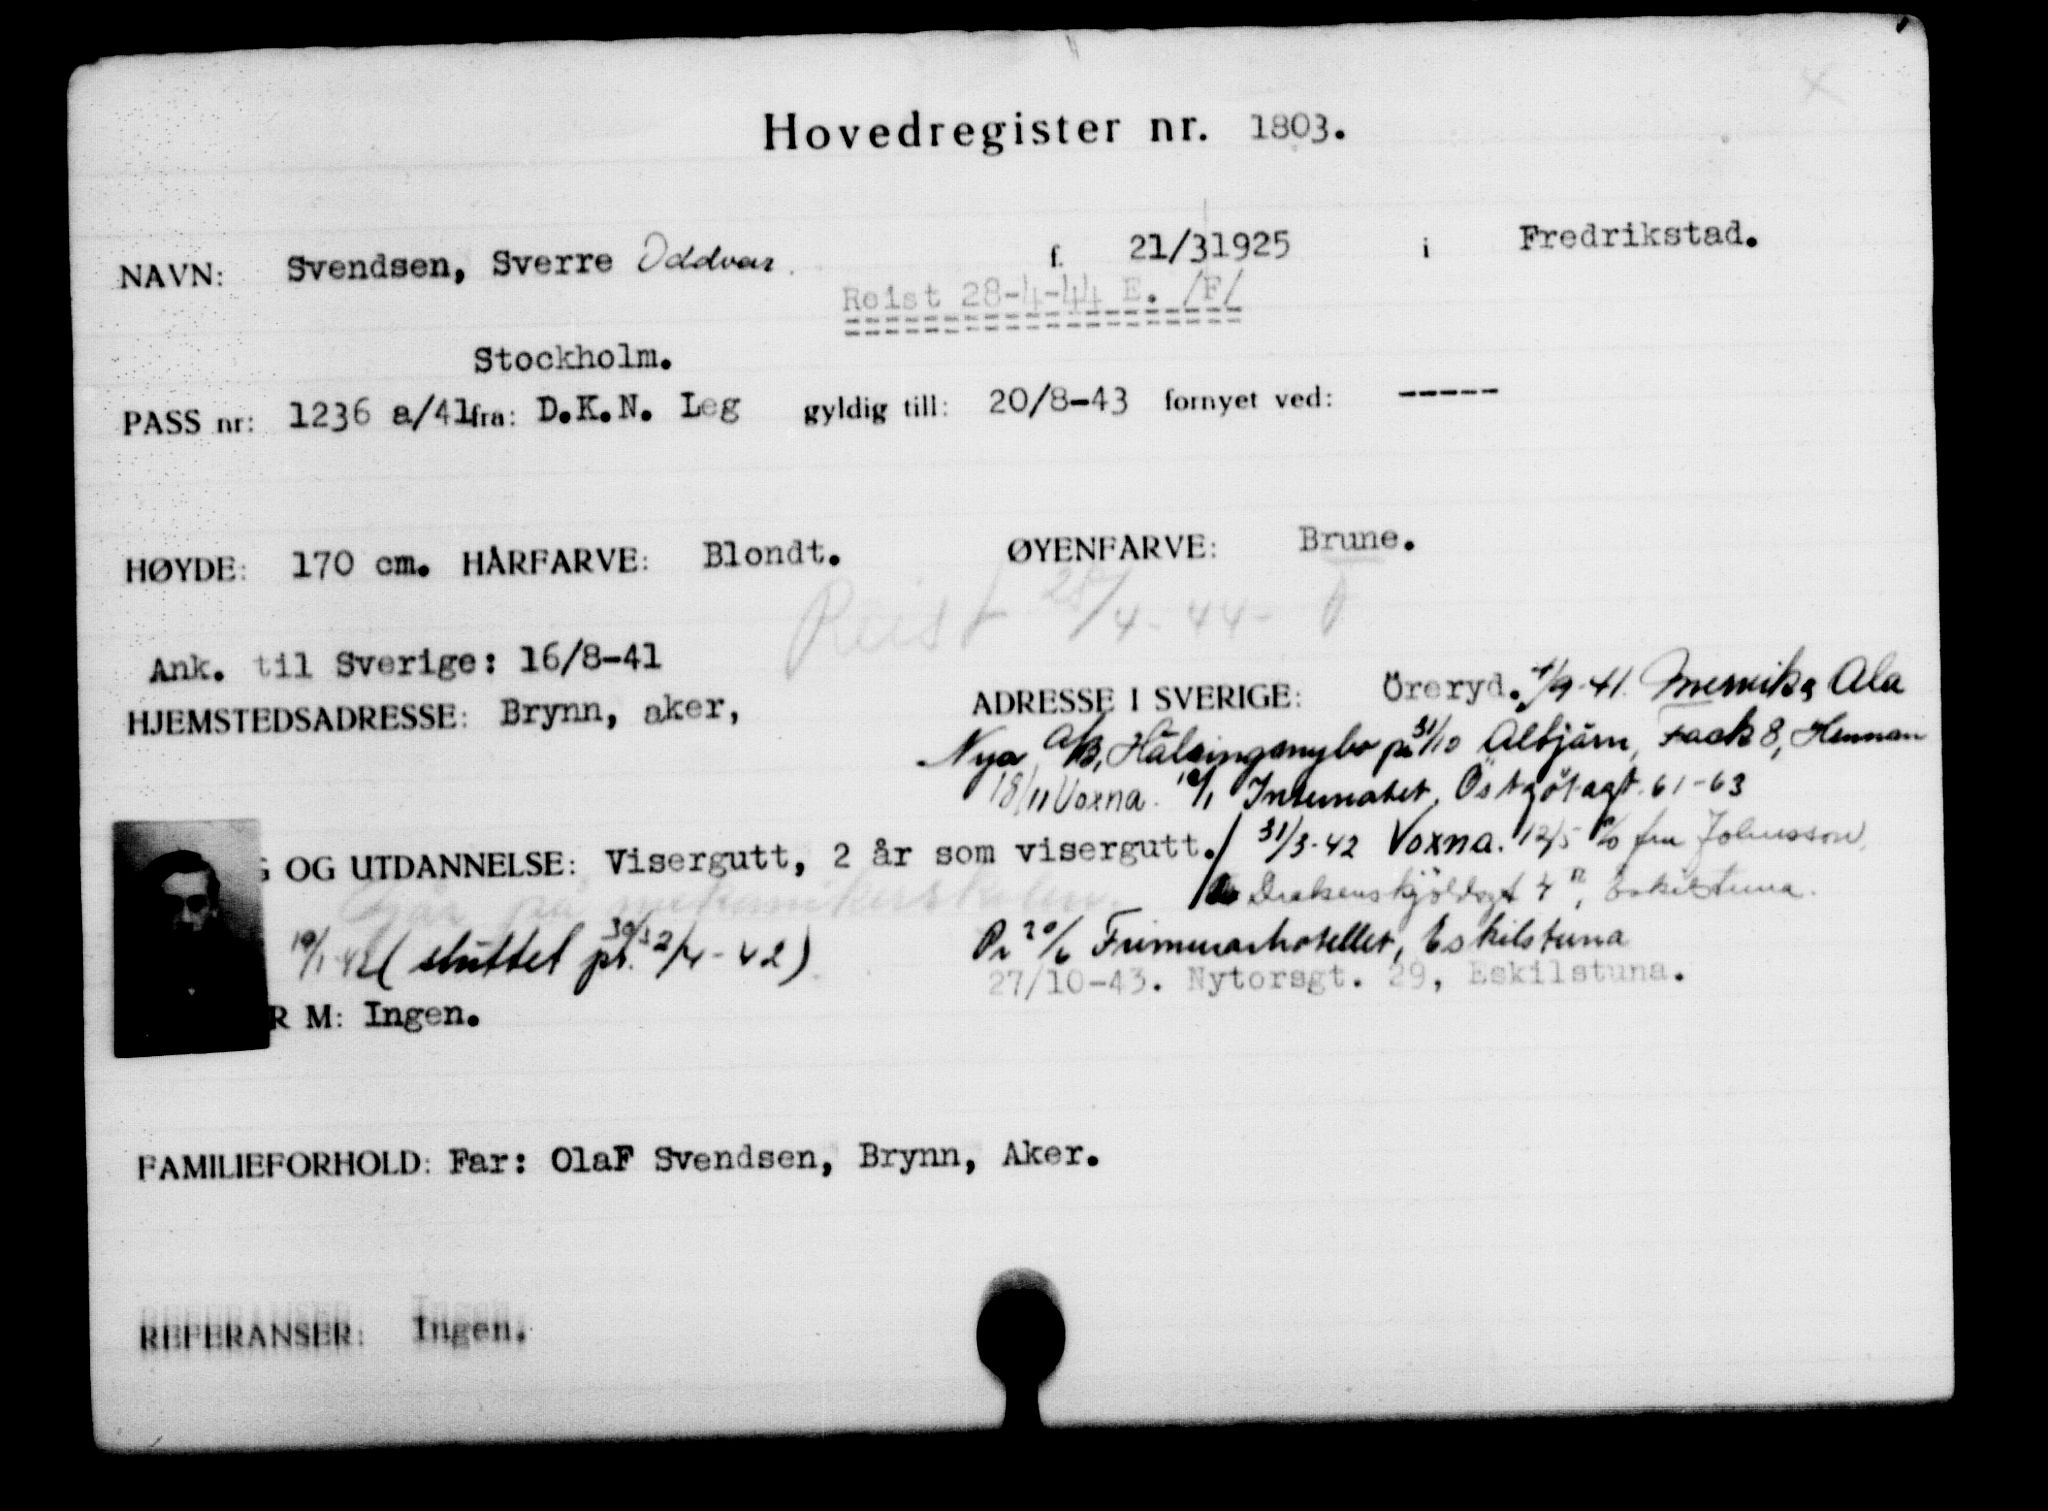 Hovedregister nr. 1803.
NAVN: Svendsen, Sverre Oddvar. f. 21/31925 i Fredrikstad.
Reist 28-4-44 E. /F/
Stockholm.
PASS nr: 1236 a/41 fra: D.K.N. Leg gyldig till: 20/8-43 fornyet ved: -----
HØYDE: 170 cm. HÅRFARVE: Blondt. ØYENFARVE: Brune.
Reist 28/4-44-
Ank. til Sverige: 16/8-41
HJEMSTEDSADRESSE: Brynn, aker,
ADRESSE I SVERIGE: Öreryd. 4/9-41. Ala
Nya A/B, Hälsingenybo pr 31/10 Altjärn, Fack 8, Hennan
18/11 Voxna. Internatet, Östgötagt. 61-63
G OG UTDANNELSE: Visergutt, 2 år som visergutt./ 31/3-42 Voxna. 12/5 c/o fru Johnsson,
Går på mekanikerskolen.
Drakenskjöldsgt 4, Eskilstuna.
19/1-42 (sluttet pr. 30/3 2/4-42)
Pr 20/6 Frimurarhotellet, Eskilstuna
27/10-43. Nytorsgt. 29, Eskilstuna.
R M: Ingen.
FAMILIEFORHOLD: Far: OlaF Svendsen, Brynn, Aker.
REFERANSER: Ingen.